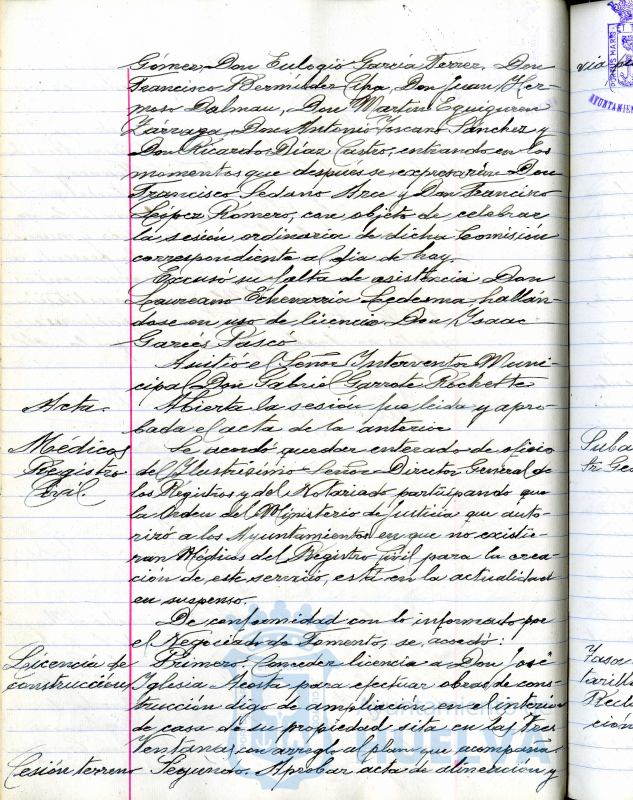 Gómez, Don Eulogio García Ferrer, Don
Francisco Bermúdez Cipa, Don Juan Her-
moso Dalmau, Don Martín Eguiguren
Zárraga, Don Antonio Toscano Sánchez y
Don Ricardo Díaz Castro, entrando en los
momentos que después se expresarán Don
Francisco Sedano Arce y Don Francisco
López Romero, con objeto de celebrar
la sesión ordinaria de dicha Comisión
correspondiente al día de hoy.
Excusó su falta de asistencia Don
Laureano Echevarría Ledesma, hallán-
dose en uso de licencia Don Isaac
Garcés Pasco
Asistió el Señor Interventor Muni-
cipal Don Gabriel Garrote Rochette
Acta. Abierta la sesión fue leída y apro-
bada el acta de la anterior
Médicos Registro Civil. Se acordó quedar enterado de oficio
del Ilustrísimo Señor Director General de
los Registros y del Notariado participando que
la Orden del Ministerio de Justicia que auto-
rizó a los Ayuntamientos en que no existie-
ran Médicos del Registro civil para la crea-
ción de este servicio, está en la actualidad
en suspenso.
De conformidad con lo informado por
el Negociado de Fomento, se acordó:
Licencia de Primero. Conceder licencia a Don José
construcción Iglesia Acosta para efectuar obras de cons-
trucción digo de ampliación en el interior
de casa de su propiedad sita en las Tres
Ventanas, con arreglo al plano que acompaña.
Cesión terreno Segundo. Aprobar acta de alineación y
HUELVA